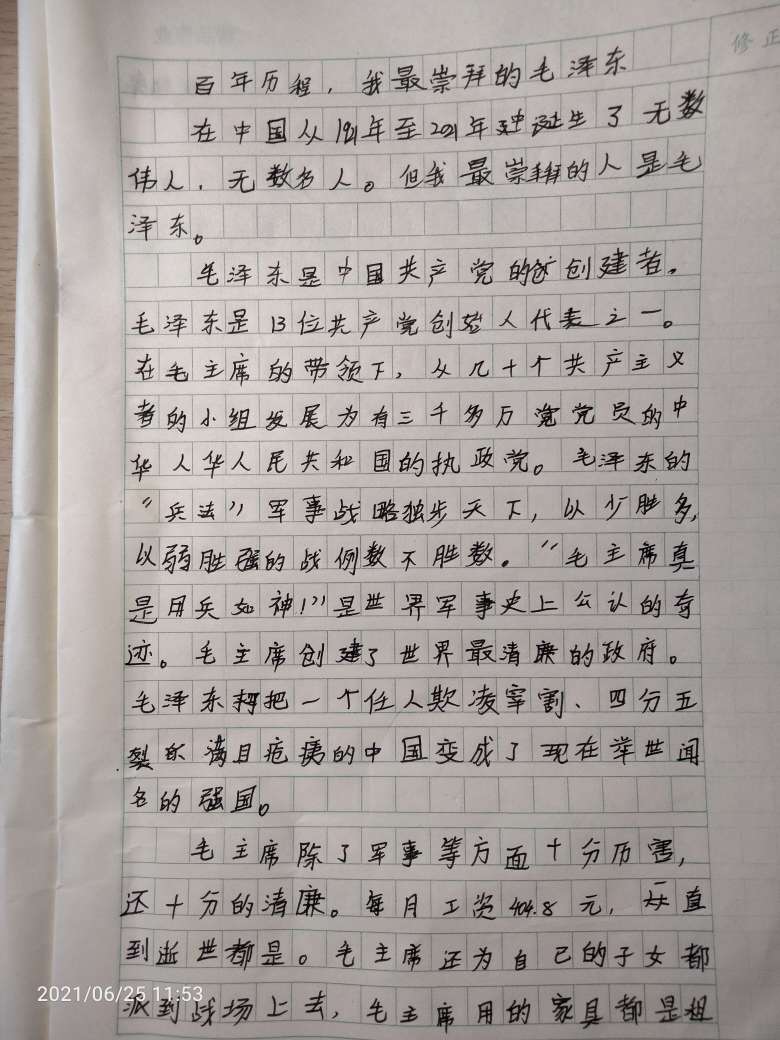 修正
百年历程，我最崇拜的毛泽东
在中国从1921年至2021年诞生了无数
伟人，无数名人。但我最崇拜的人是毛
泽东。
毛泽东是中国共产党的创建者。
毛泽东是13位共产党创始人代表之一。
在毛主席的带领下，从几十个共产主义
者的小组发展为有三千多万党员的中
华人华人民共和国的执政党。毛泽东的
“兵法”军事战略独步天下，以少胜多，
以弱胜强的战例数不胜数。“毛主席真
是用兵如神！”是世界军事史上公认的奇
迹。毛主席创建了世界最清廉的政府。
毛泽东把一个任人欺凌宰割、四分五
裂满目疮痍的中国变成了现在举世闻
名的强国。
毛主席除了军事等方面十分厉害，
还十分的清廉。每月工资404.8元，直
到逝世都是。毛主席还为自己的子女都
派到战场上去，毛主席用的家具都是租
2021/06/25 11:53